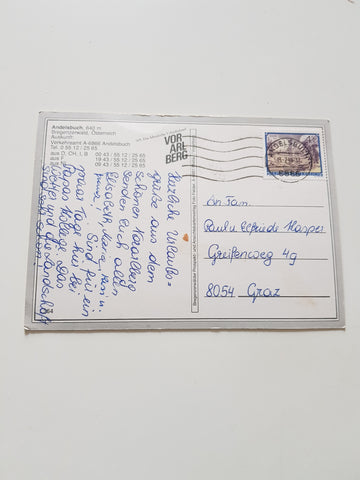 Andelsbuch, 640 m
Bregenzerwald, Österreich
Auskunft:
Verkehrsamt A-6866 Andelsbuch
Tel. 0 55 12 / 25 65
aus D, CH, I, B 00 43 / 55 12 / 25 65
aus F 19 43 / 55 12 / 25 65
aus NL 09 43 / 55 12 / 25 65
VOR
ARL
BERG
ANDELSBUCH
6866
Herzliche Urlaubs-
grüße aus dem
schönen Vorarlberg
senden Euch allen
Elisabeth,
Sind für ein
paar Tage hier bei
Papas Kollege. Das
Wetter und die Landschaft
An Fam.
Paul u Elfriede Kasper
Greifenweg 4g
8054 Graz